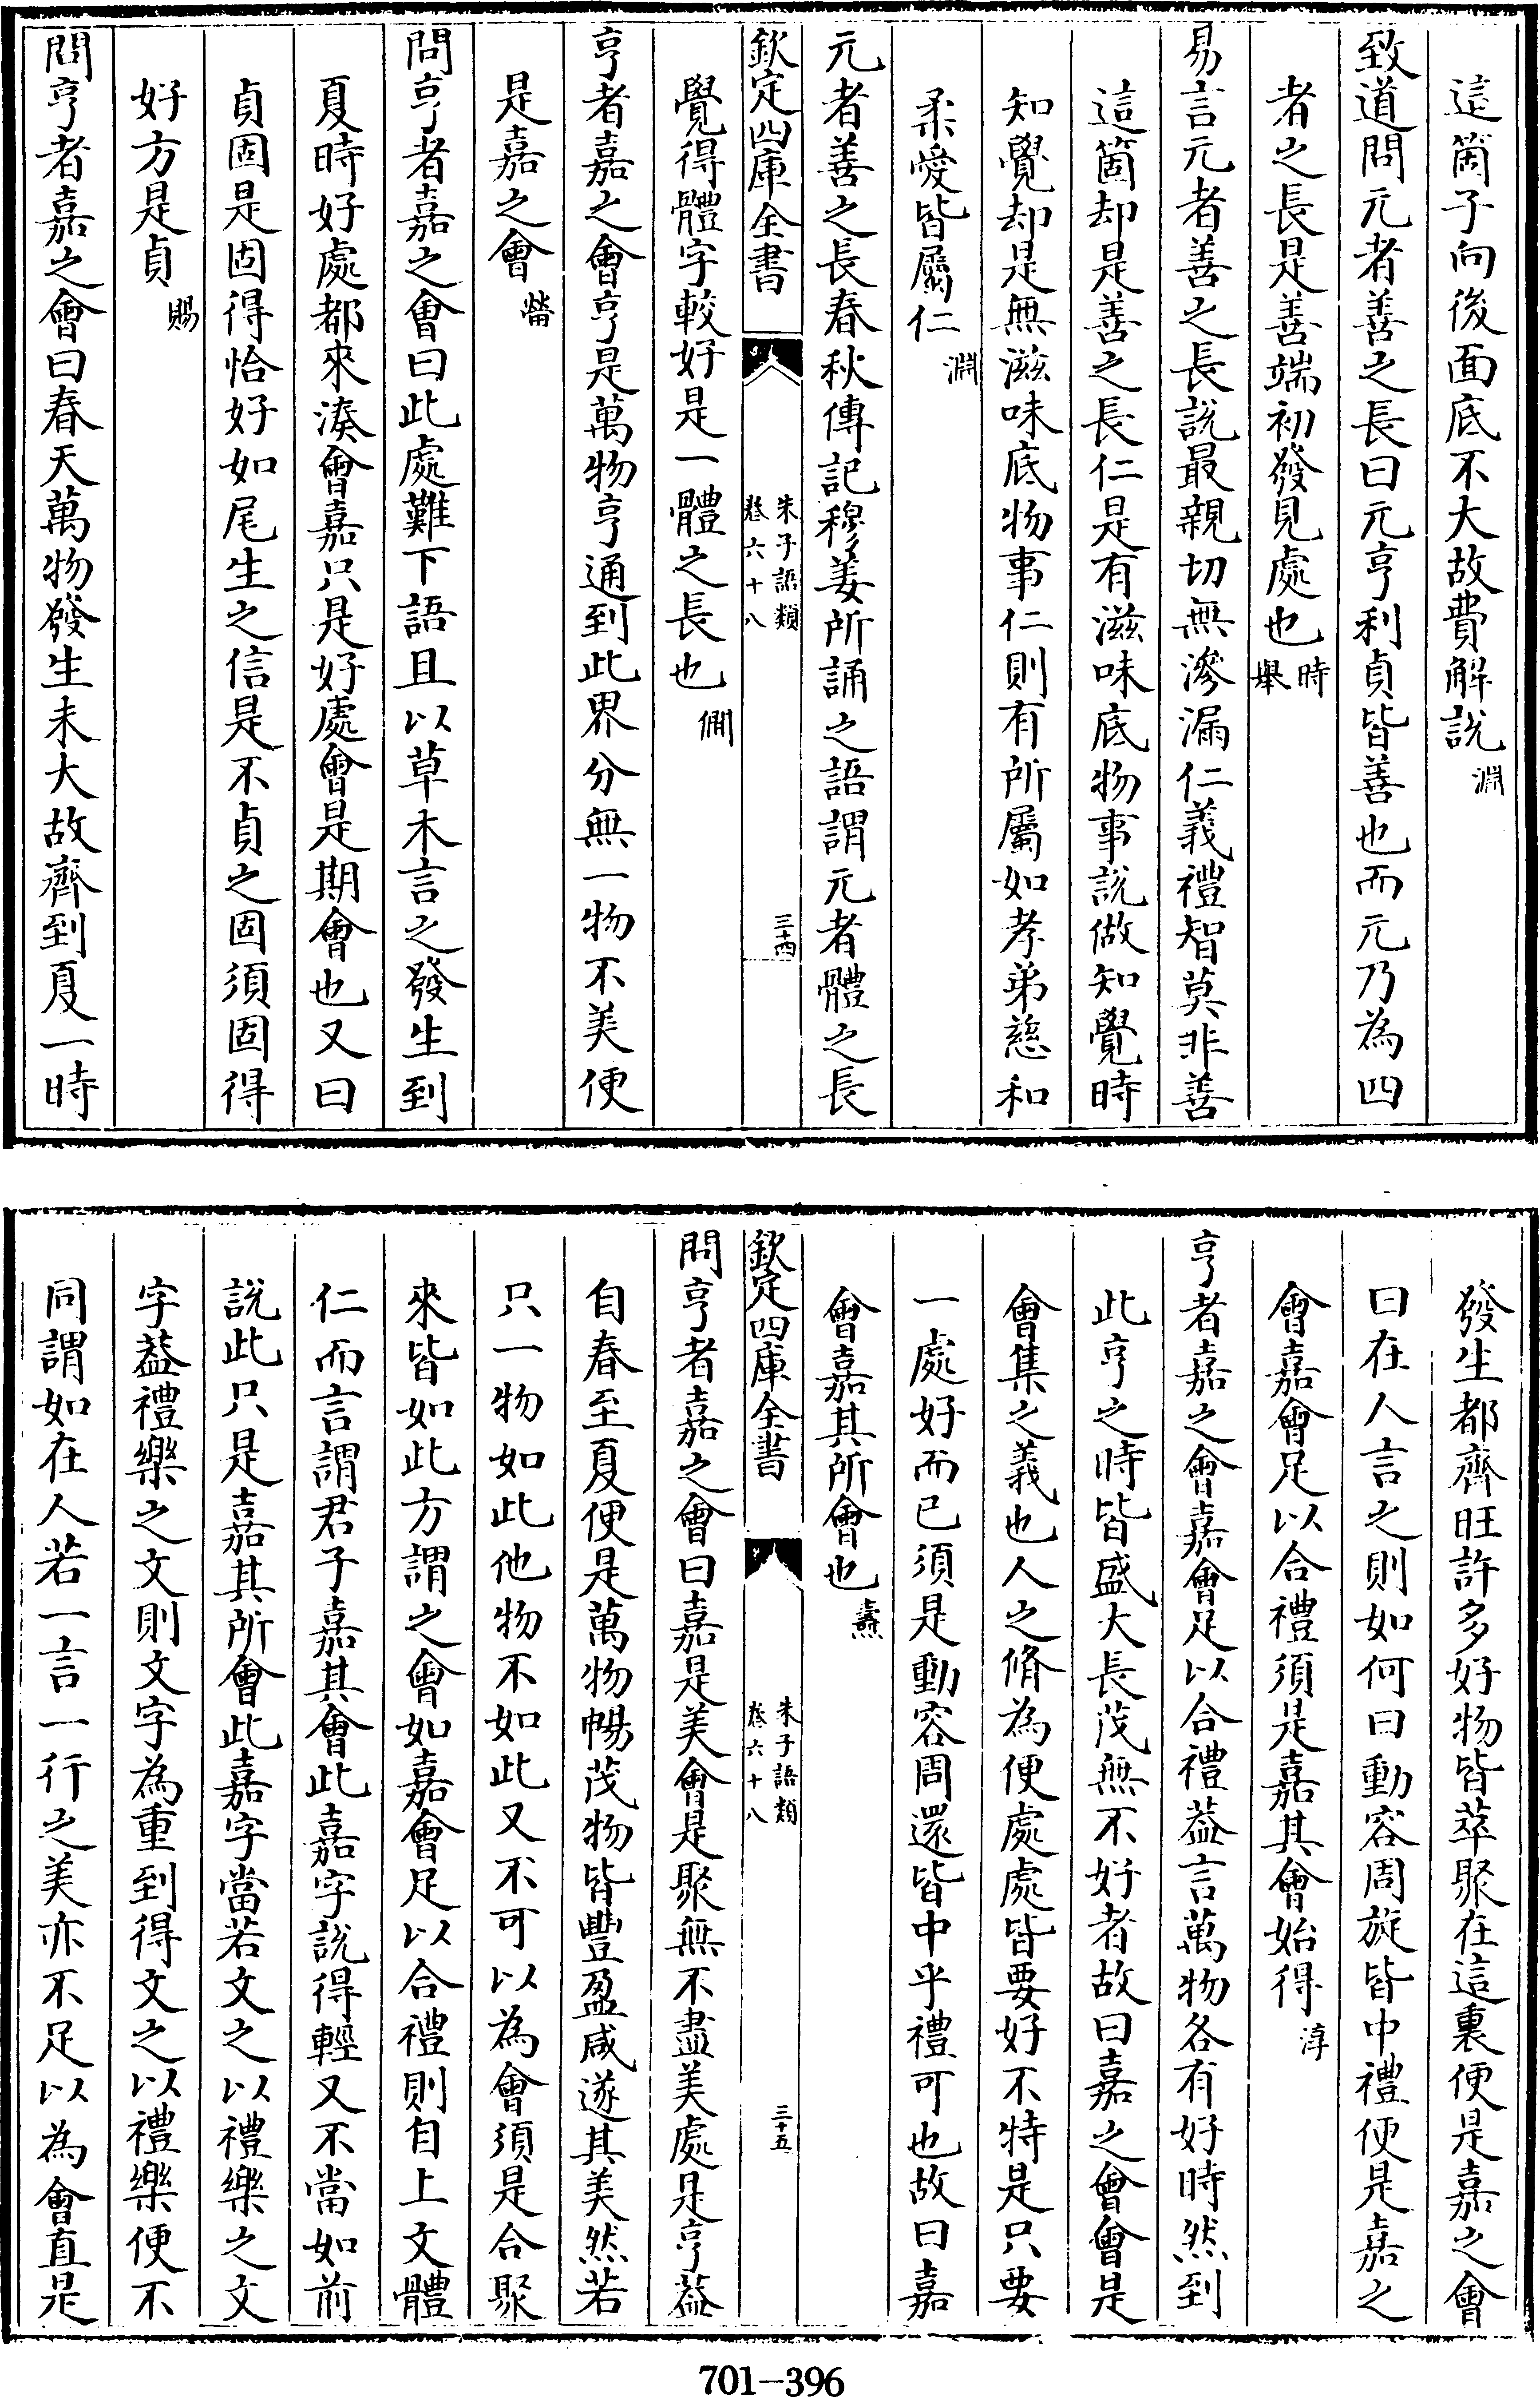 這箇子向後面底不大故費解説淵
致道問元者善之長曰元亨利貞皆善也而元乃為四
者之長是善端初發見處也時舉
易言元者善之長説最親切無滲漏仁義禮智莫非善
這箇却是善之長仁是有滋味底物事説做知覺時
知覺却是無滋味底物事仁則有所屬如孝弟慈和
柔愛皆屬仁淵
元者善之長春秋傳記穆姜所誦之語謂元者體之長
欽定四庫全書
朱子語類
卷六十八
三十四
覺得體字較好是一體之長也僩
亨者嘉之會亨是萬物亨通到此界分無一物不美便
是嘉之會㽦
問亨者嘉之會曰此處難下語且以草木言之發生到
夏時好處都來湊會嘉只是好處會是期會也又曰
貞固是固得恰好如尾生之信是不貞之固須固得
好方是貞賜
問亨者嘉之會曰春天萬物發生未大故齊到夏一時
發生都齊旺許多好物皆萃聚在這裏便是嘉之會
曰在人言之則如何曰動容周旋皆中禮便是嘉之
會嘉會足以合禮須是嘉其會始得淳
亨者嘉之會嘉會足以合禮葢言萬物各有好時然到
此亨之時皆盛大長茂無不好者故曰嘉之會會是
會集之義也人之脩為便處處皆要好不特是只要
一處好而已須是動容周還皆中乎禮可也故曰嘉
會嘉其所會也燾
欽定四庫全書
朱子語類
卷六十八
三十五
問亨者嘉之會曰嘉是美會是聚無不盡美處是亨葢
自春至夏便是萬物暢茂物皆豐盈咸遂其美然若
只一物如此他物不如此又不可以為會須是合聚
來皆如此方謂之會如嘉會足以合禮則自上文體
仁而言謂君子嘉其會此嘉字説得輕又不當如前
説此只是嘉其所會此嘉字當若文之以禮樂之文
字葢禮樂之文則文字為重到得文之以禮樂便不
同謂如在人若一言一行之美亦不足以為會直是
701-396